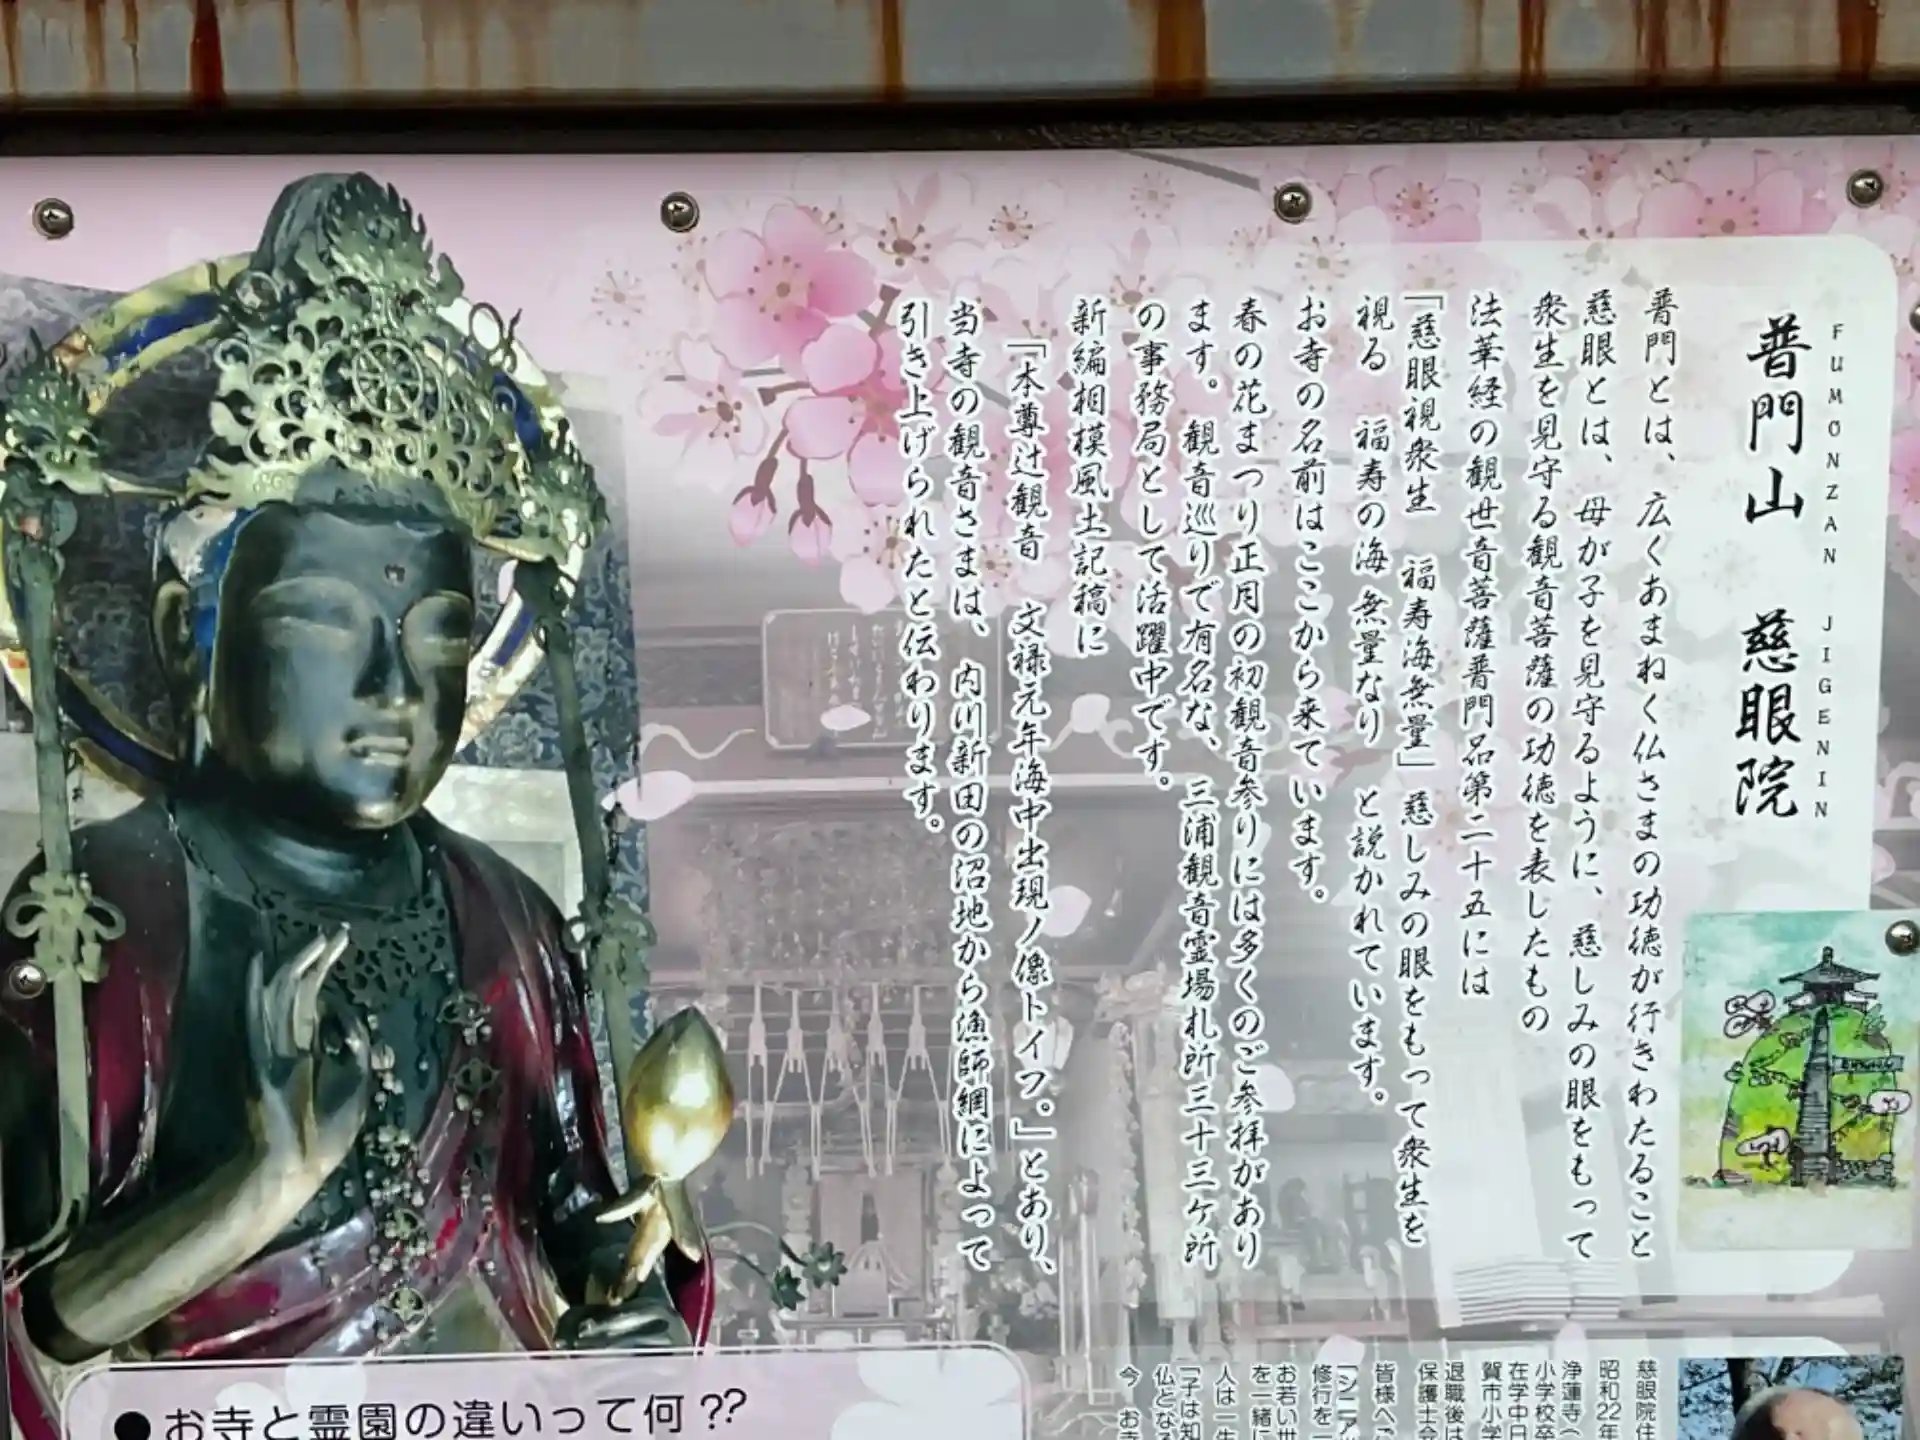 普門山 慈眼院
FUMONZAN JIGENIN
普門とは、広くあまねく仏さまの功徳が行きわたること
慈眼とは、母が子を見守るように、慈しみの眼をもって
衆生を見守る観音菩薩の功徳を表したもの
法華経の観世音菩薩普門品第二十五には
「慈眼視衆生 福寿海無量」慈しみの眼をもって衆生を
視る 福寿の海 無量なり と説かれています。
お寺の名前はここから来ています。
春の花まつり正月の初観音参りには多くのご参拝があり
ます。観音巡りで有名な、三浦観音霊場札所三十三ヶ所
の事務局として活躍中です。
新編相模風土記稿に
「本尊辻観音 文禄元年海中出現ノ像トイフ。」とあり、
当寺の観音さまは、内川新田の沼地から漁師網によって
引き上げられたと伝わります。
●お寺と霊園の違いって何??
慈眼院住
昭和22年
浄蓮寺（
小学校卒
在学中日
賀市小学
退職後は
保護士会
皆様へご
「シニア
修行を一
お若い世
を一緒に
人は一生
「子は知
仏となる
今 お寺